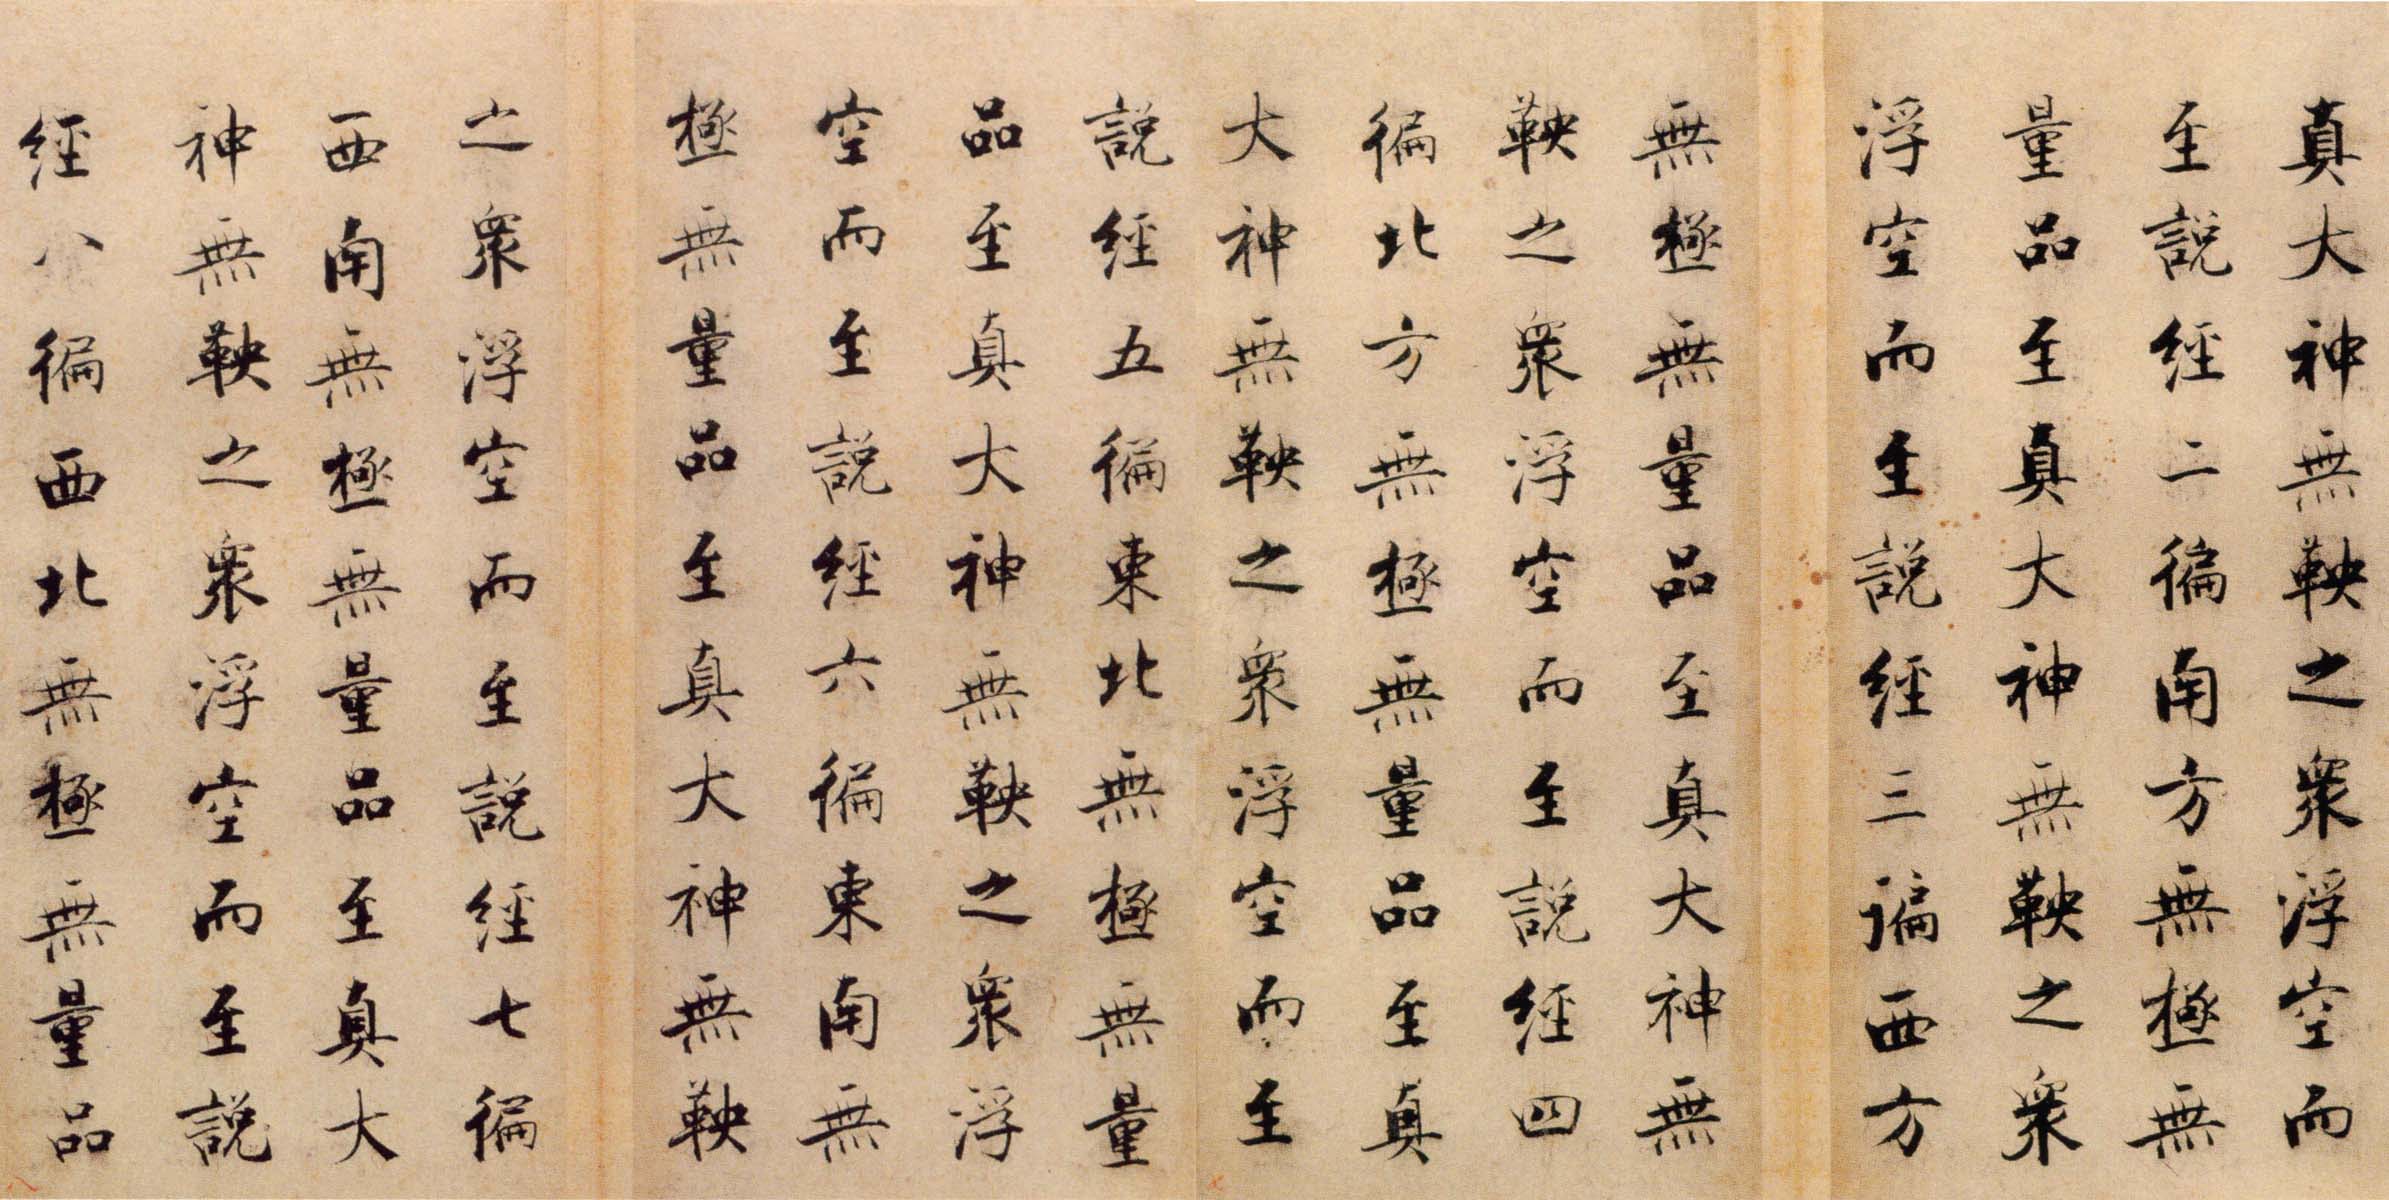 真大神無鞅之衆浮空而
至說經二徧南方無極無
量品至真大神無鞅之衆
浮空而至說經三徧西方
無極無量品至真大神無
鞅之衆浮空而至說經四
徧北方無極無量品至真
大神無鞅之衆浮空而至
說經五徧東北無極無量
品至真大神無鞅之衆浮
空而至說經六徧東南無
極無量品至真大神無鞅
之衆浮空而至說經七徧
西南無極無量品至真大
神無鞅之衆浮空而至說
經八徧西北無極無量品